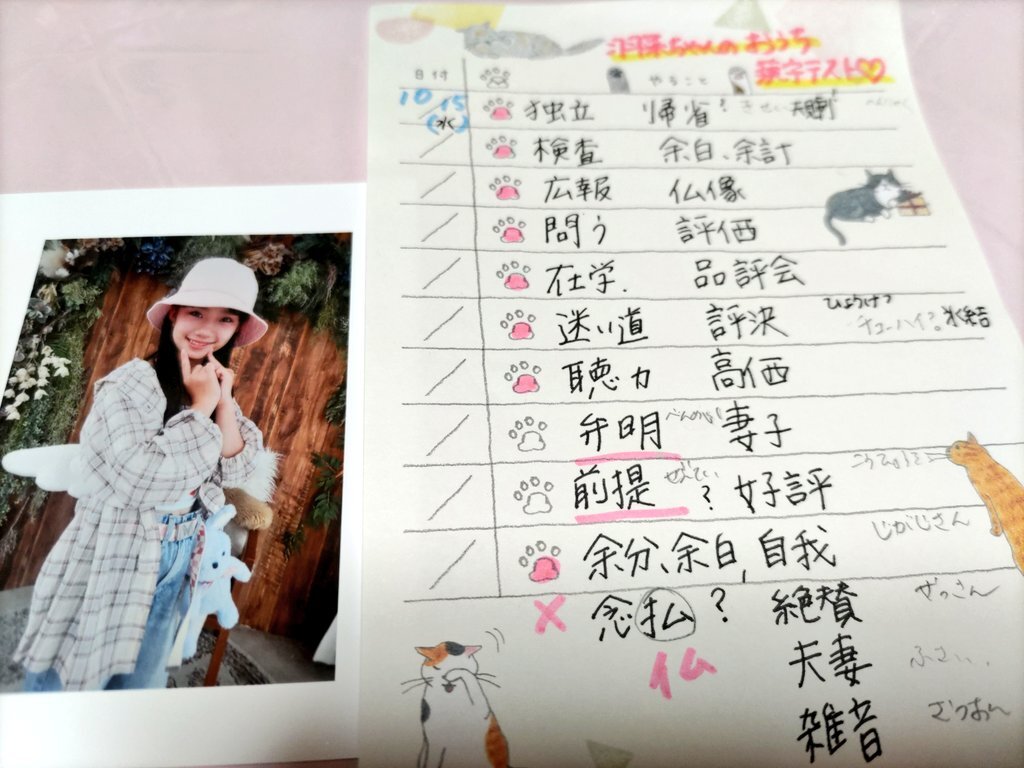 ちゃんのおうち
漢字テスト♡
日付 やること
10/15 独立 帰省? きせい
(水)
/ 検査 余白、余計
/ 広報 仏像
/ 問う 評価
/ 在学. 品評会
/ 迷い道 評決 ひょうけつ チューハイ?。氷結
/ 聴力 高価
/ 弁明 べんめい! 妻子
/ 前提 ぜんてい ? 好評
/ 余分、余白、自我 じがじさん
× 念払? 絶賛 ぜっさん
仏 夫妻 ふさい..
雑音 ざつおん